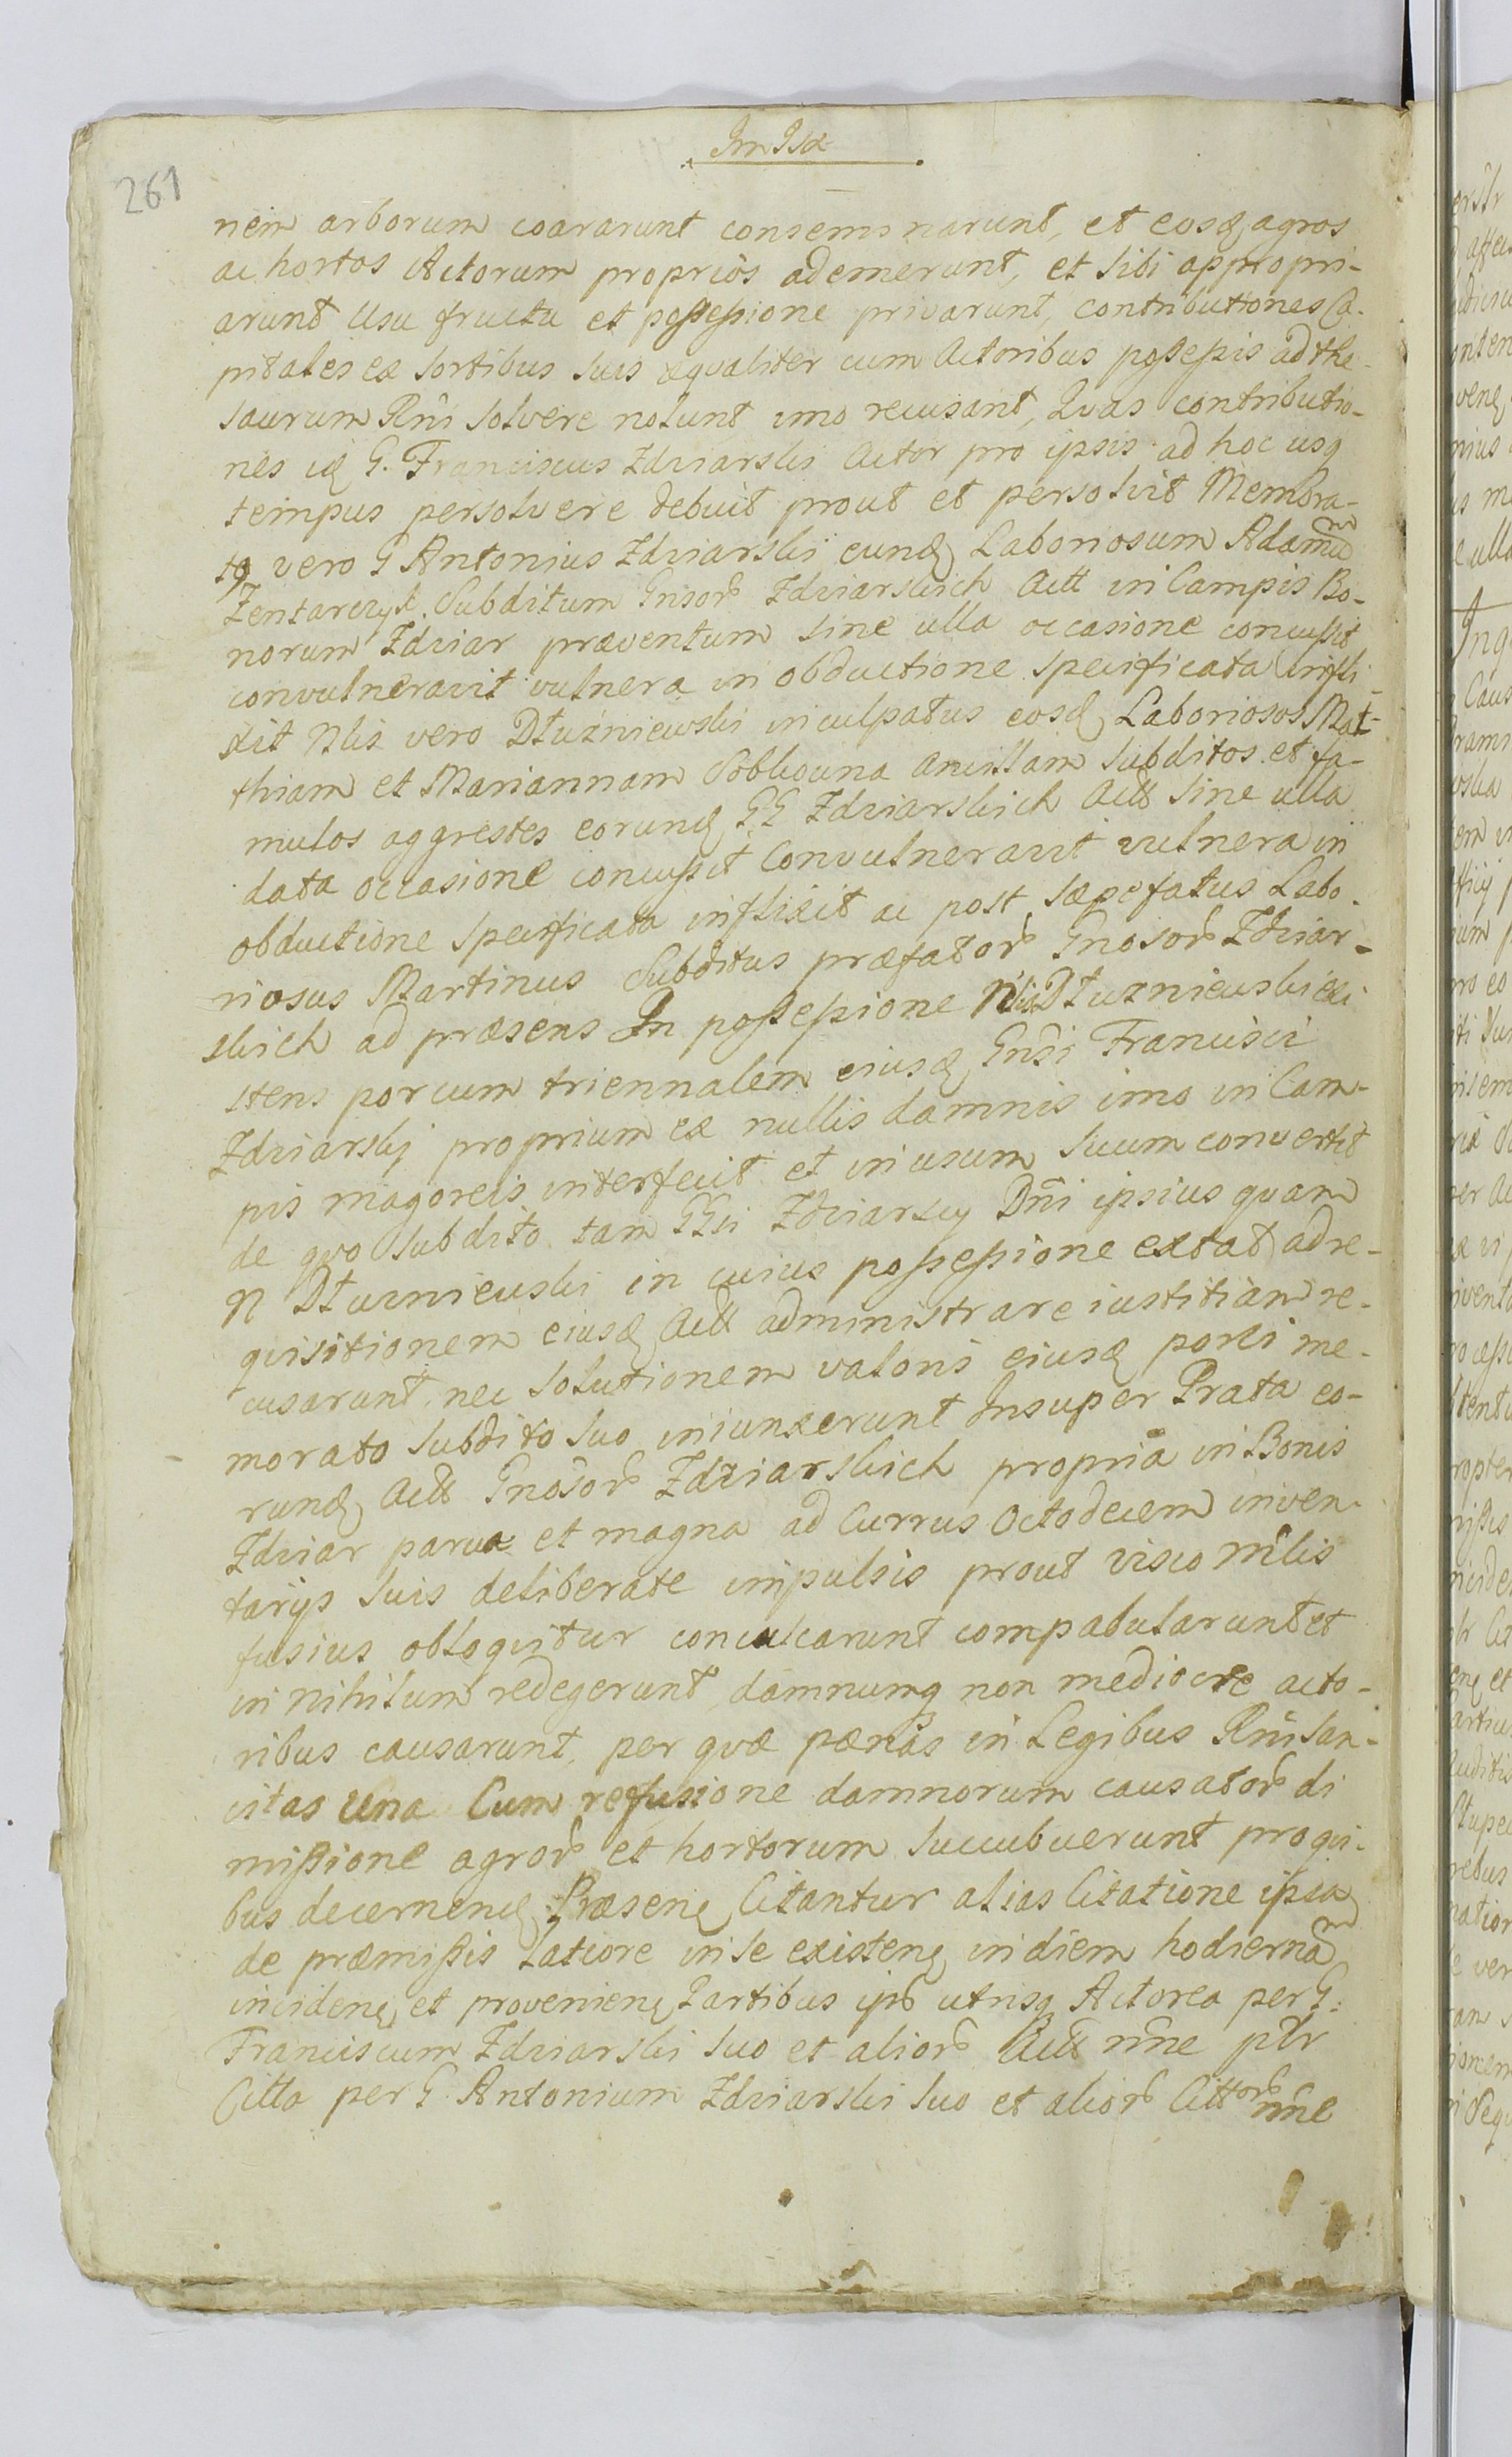 261
nem arborum coararunt conseminarunt, et eosq agros
ac hortos Actorum proprios ademerunt, et sibi appropri-
arunt Usu fructu et possessione privarunt, contributiones Ca-
pitales ex sortibus suis æqualiter cum Actoribus possessis ad the-
saurum Rni solvere nolunt imo recusant, Quas contributio-
nes iq G. Franciscus Zdziarski Actor pro ipsis ad hoc usq
tempus persolvere debuit prout et persolvit Memora-
tq vero G Antonius Zdziarski eunq Laboriosum Adamum
Zentarczyk Subditum Gnsor Zdziarskich Actt in Campis Bo-
norum Zdziar præventum sine ulla occasione concussit
convulneravit vulnera in obductione specificata infli-
xit Nlis vero Dłuzniewski inculpatus eosq Laboriosos Mat-
thiam et Mariannam ancillam Subditos et fa-
mulos aggrestes eorunq GG Zdziarskich Actt sine ulla
data occasione concussit Convulneravit vulnera in
obductione specificata inflixit ac post sæpefatus Labo-
riosus Martinus Subditus præfator Gnosor Zdziar-
skich ad præsens In possessione Nlis Dłuzniewski exi
stens porcum triennalem eiusq Gnsi Francisci
Zdziarskj proprium ex nullis damnis imo in Cam-
pis magoreis interfecit et in usum suum convertit
de quo subdito tam GGsi Zdziarscy Dni ipsius quam
N Dłuzniewski in cuius possessione extat ad re-
quisitionem eiusq Actt administrare iustitiam re-
cusarunt nec solutionem valoris eiusq porci me-
morato subdito suo iniunxerunt Insuper Prata eo-
runq Actt Gnosor Zdziarskich propria in Bonis
Zdziar parva et magna ad Currus Octodecem inven-
tarys suis deliberate impulsis prout visio mlis
fusius obloquitur conculcarunt compabularunt et
in nihilum redegerunt, damnumq non mediocre acto-
ribus causarunt, per quæ pænas in Legibus Rni san-
citas una Cum refusione damnorum causator di
missione agror et hortorum succubuerunt pro qui-
bus decernenq Præsenq Citantur alias Citatione ipsa
de præmissis latiore in se existenq in diem hodiernam
incidenq et provenienq Partibus ipis utrisq Actorea per G:
Franciscum Zdziarski suo et alior Actt nne pltr
Citta per G Antonium Zdziarski suo et alior Cittor nne